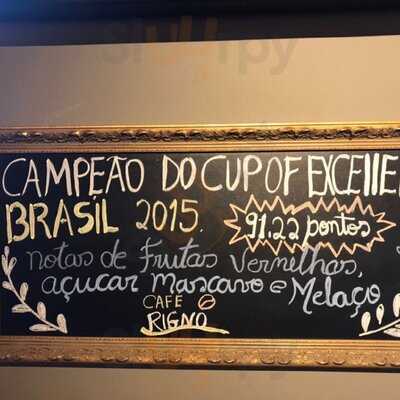 Slurpy
CAMPEÃO DO CUP OF EXCELLE
BRASIL 2015.
91.22 pontos
notas de Frutas Vermelhas,
açucar Mascavo e Melaço
CAFÉ
RIGNO